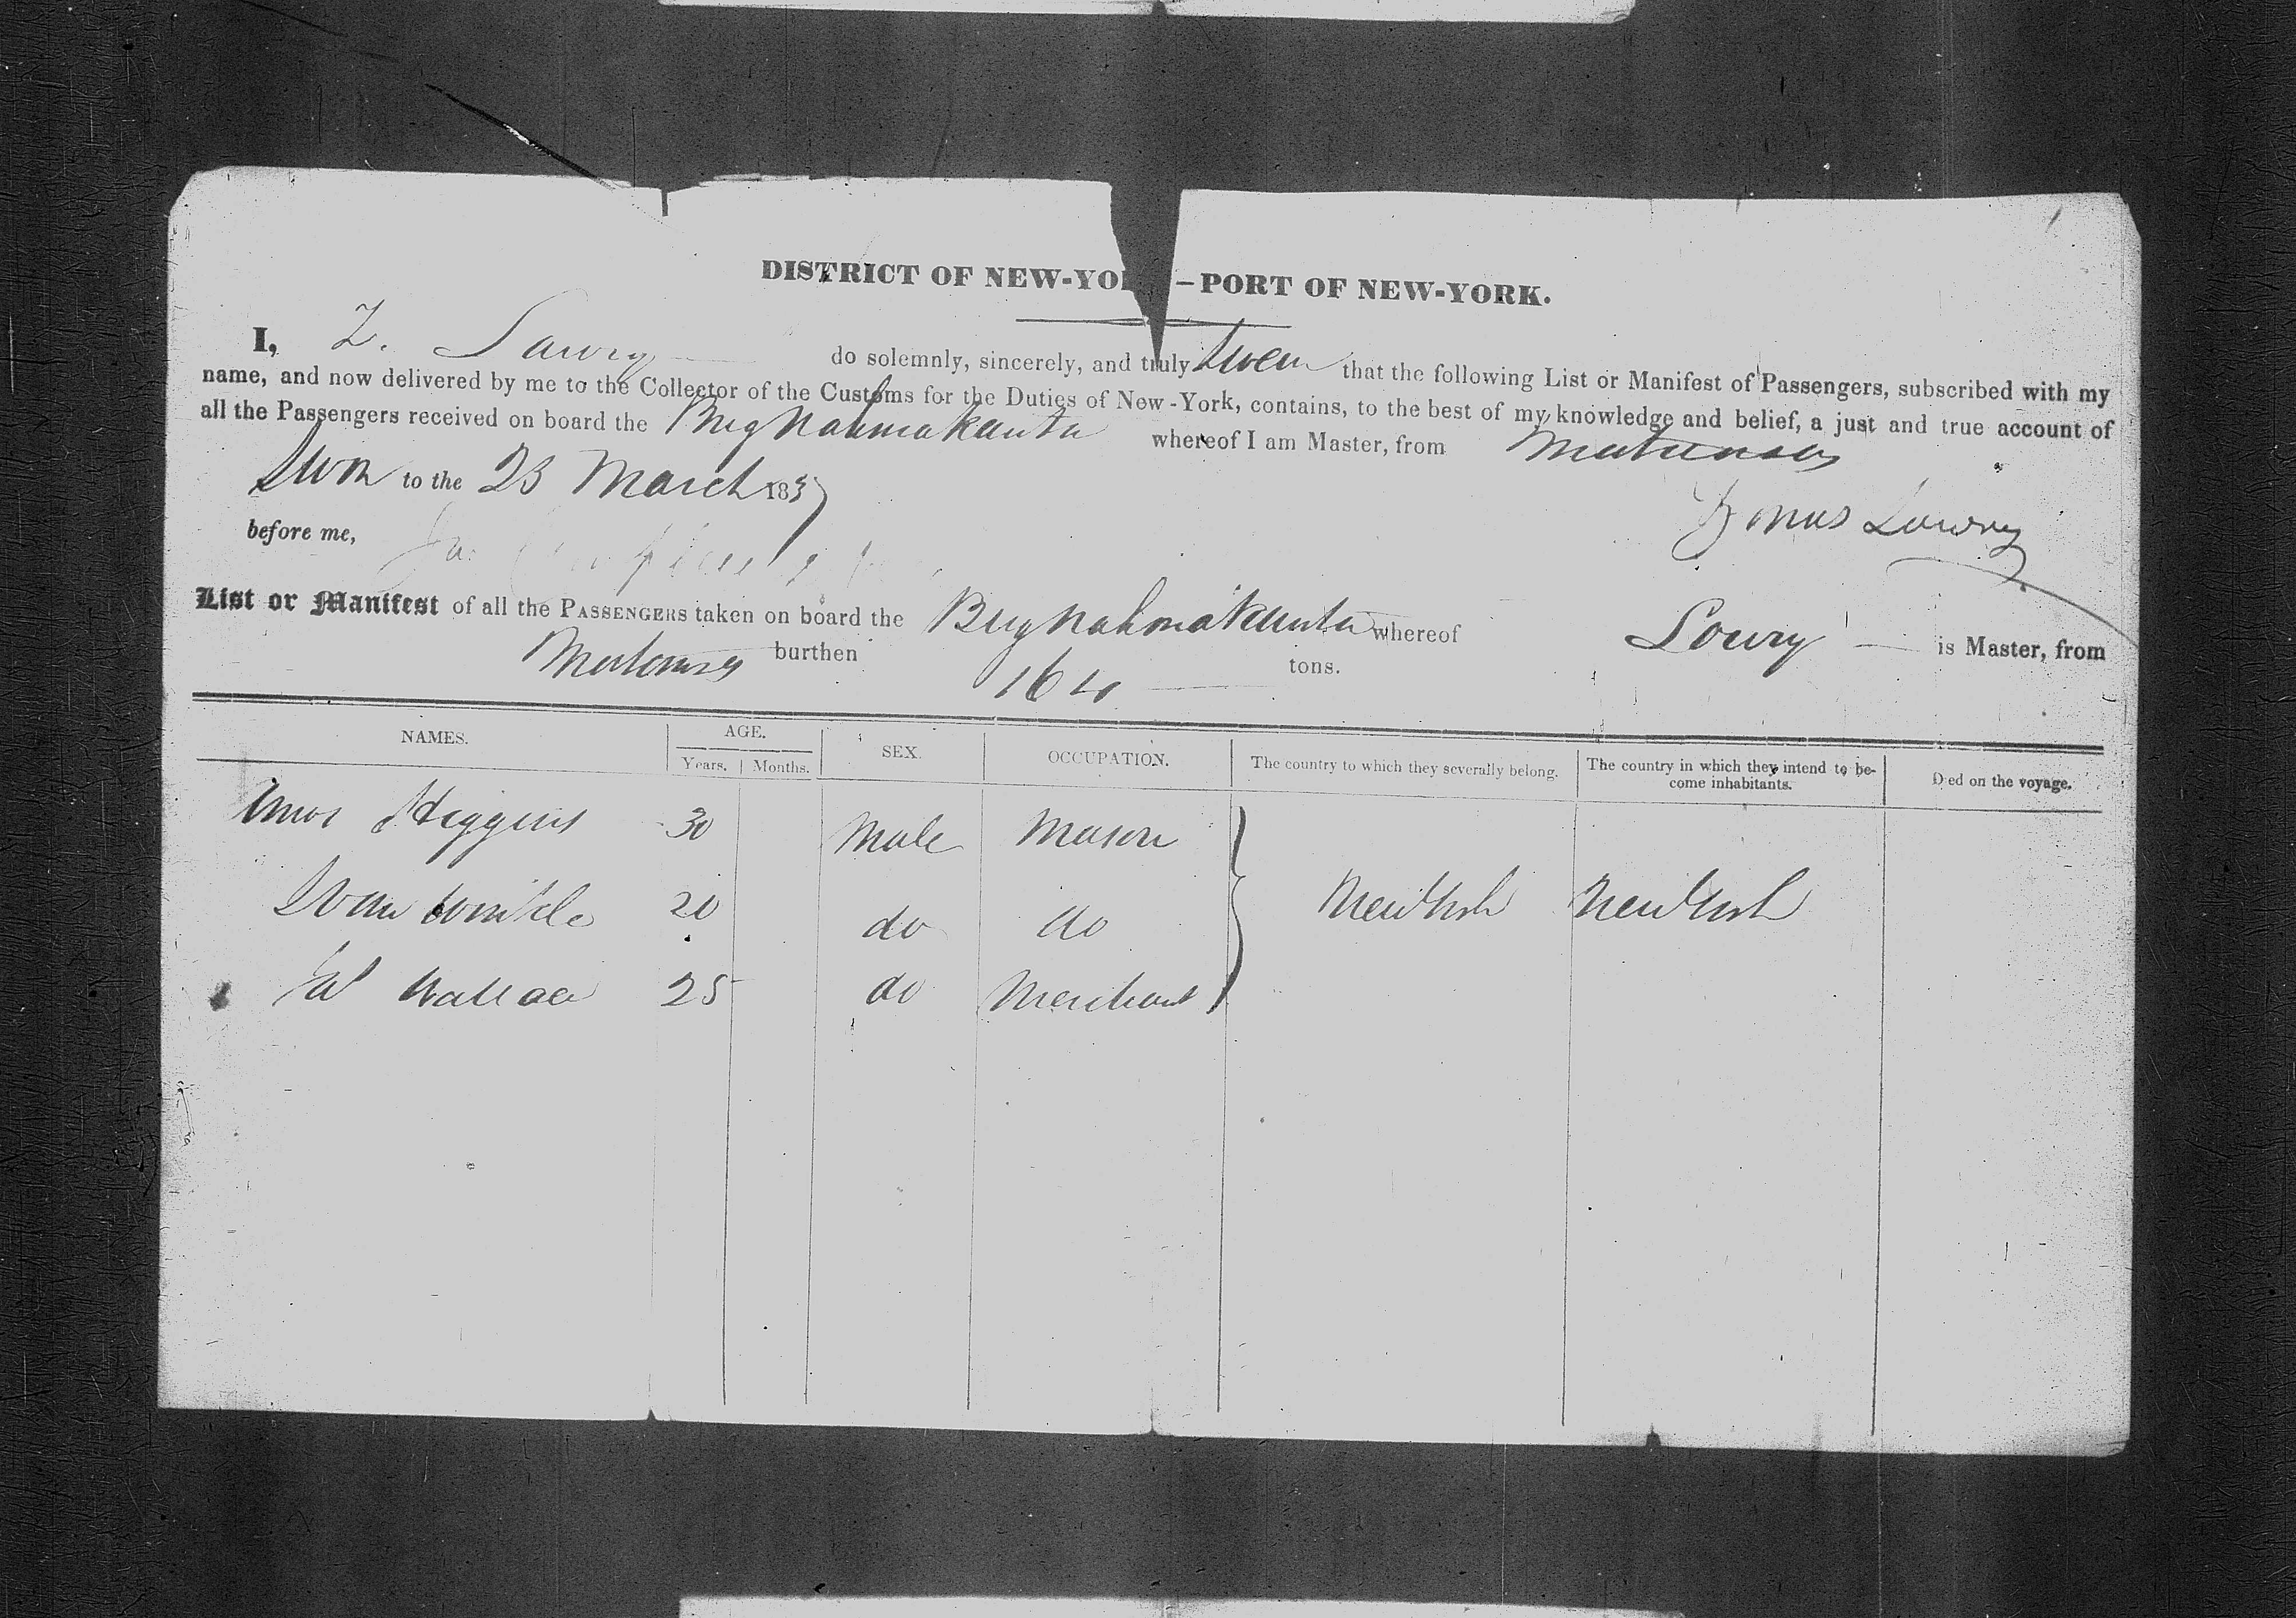 DISTRICT OF NEW-YO — PORT OF NEW-YORK.
I, Z. Lawry do solemnly, sincerely, and truly swear that the following List or Manifest of Passengers, subscribed with my
name, and now delivered by me to the Collector of the Customs for the Duties of New-York, contains, to the best of my knowledge and belief, a just and true account of
all the Passengers received on board the Brig Nahmakanta whereof I am Master, from Matanzas
Swon to the 23 March 1837
Lowry
before me,
List or Manifest of all the PASSENGERS taken on board the Brig Nahmakanta whereof Lowry is Master, from
Matanzas burthen 164 tons.
NAMES. AGE. SEX. OCCUPATION. The country to which they severally belong. The country in which they intend to be-
come inhabitants. Died on the voyage.
Years. Months.
Amos Higgins 30 Male Mason
20 do do New York New York
W Wallace 25 do Merchant